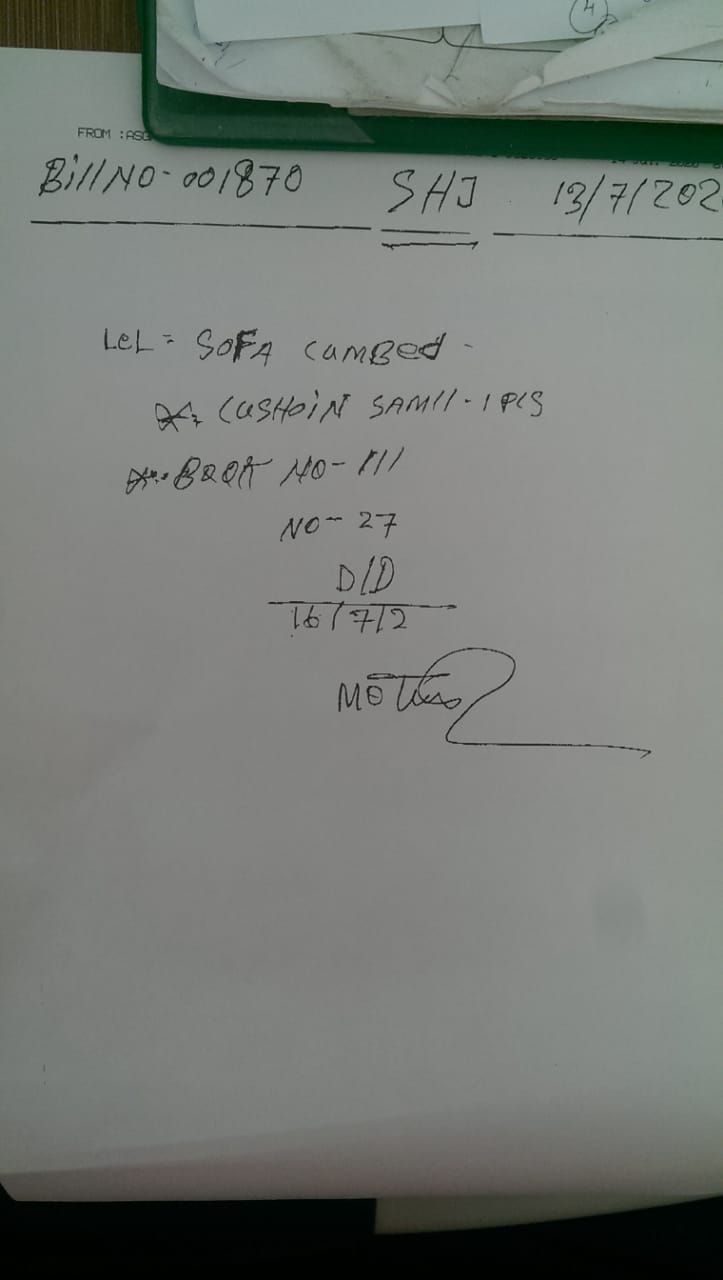 4
FROM :ASG
Bill NO - 001870 SHJ 13/7/202
LeL = SOFA CUMBed -
CUSHOIN SAMll - 1 PCS
BOOK NO - 111
NO - 27
D/D
16/7/2